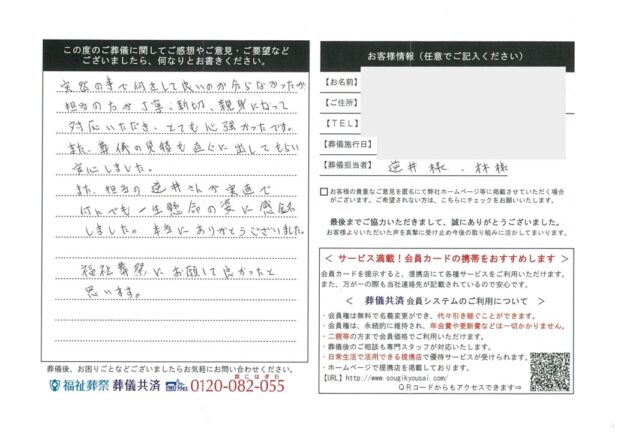 この度のご葬儀に関してご感想やご意見・ご要望など
ございましたら、何なりとお書きください。
突然の事で何をして良いのか分らなかったが
担当の方が丁寧、親切、親身になって
対応いただき、とても心強かったです。
また、葬儀の見積も直ぐに出してもらい
安心しました。
また、担当の逆井さんが実直で
何んでも一生懸命の姿に感銘
しました。本当にありがとうございました。
福祉葬祭にお願して良かったと
思います。
葬儀後、お困りごとなどございましたらお気軽にお問い合わせください。
福祉葬祭 葬儀共済 0120-082-055
お客様情報（任意でご記入ください）
【お名前】
【ご住所】
【TEL】
【葬儀施行日】
【葬儀担当者】 逆井様、林様
お客様の貴重なご意見を匿名にて弊社ホームページ等に掲載させていただく場合
がございます。ご希望されない方は、こちらにチェックをお願いいたします。
最後までご協力いただきまして、誠にありがとうございました。
お客様よりいただいた声を真摯に受け止め今後の取り組みに活かしてまいります。
＜ サービス満載！会員カードの携帯をおすすめします ＞
会員カードを提示すると、提携店にて各種サービスをご利用いただけます。
また、万が一の際も当社連絡先が記載されているので安心です。
＜ 葬儀共済 会員システムのご利用について ＞
・会員権は無料で名義変更ができ、代々引き継ぐことができます。
・会員権は、永続的に維持され、年会費や更新費などは一切かかりません。
・二親等の方まで会員価格でご利用いただけます。
・葬儀後のご相談も専門スタッフが対応いたします。
・日常生活で活用できる提携店で優待サービスが受けられます。
・ホームページで提携店を掲載しております。
【URL】http://www.sougikyousai.com/
QRコードからもアクセスできます⇒